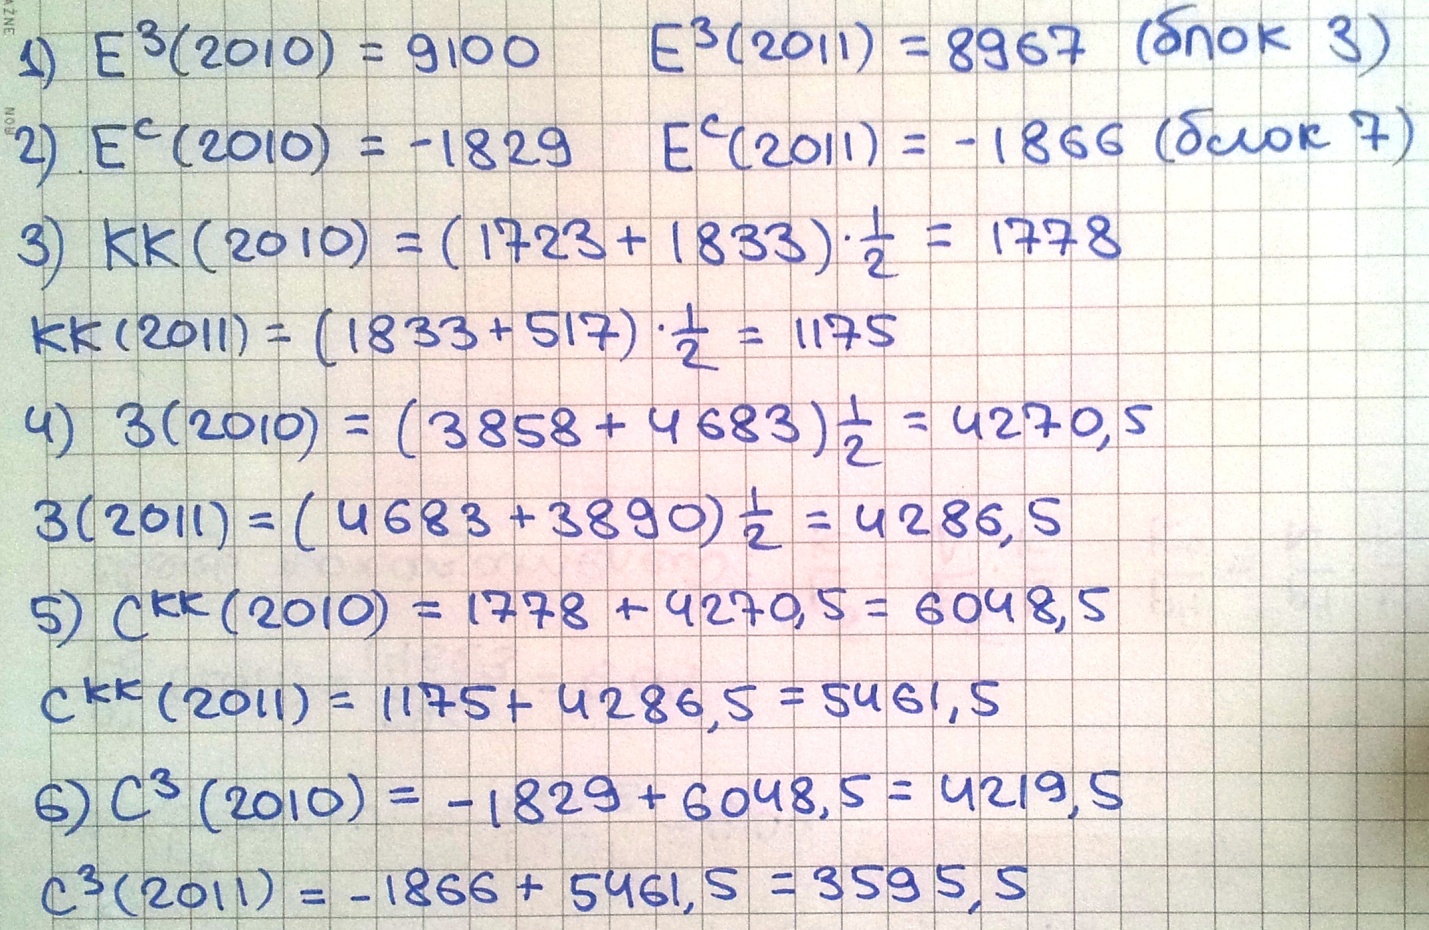 1) Е³(2010) = 9100 Е³(2011) = 8967 (блок 3)
2) Еᶜ(2010) = -1829 Еᶜ(2011) = -1866 (блок 7)
3) КК(2010) = (1723 + 1833)·1/2 = 1778
КК(2011) = (1833 + 517)·1/2 = 1175
4) З(2010) = (3858 + 4683)1/2 = 4270,5
З(2011) = (4683 + 3890)1/2 = 4286,5
5) Cᴷᴷ(2010) = 1778 + 4270,5 = 6048,5
Cᴷᴷ(2011) = 1175 + 4286,5 = 5461,5
6) C³(2010) = -1829 + 6048,5 = 4219,5
C³(2011) = -1866 + 5461,5 = 3595,5